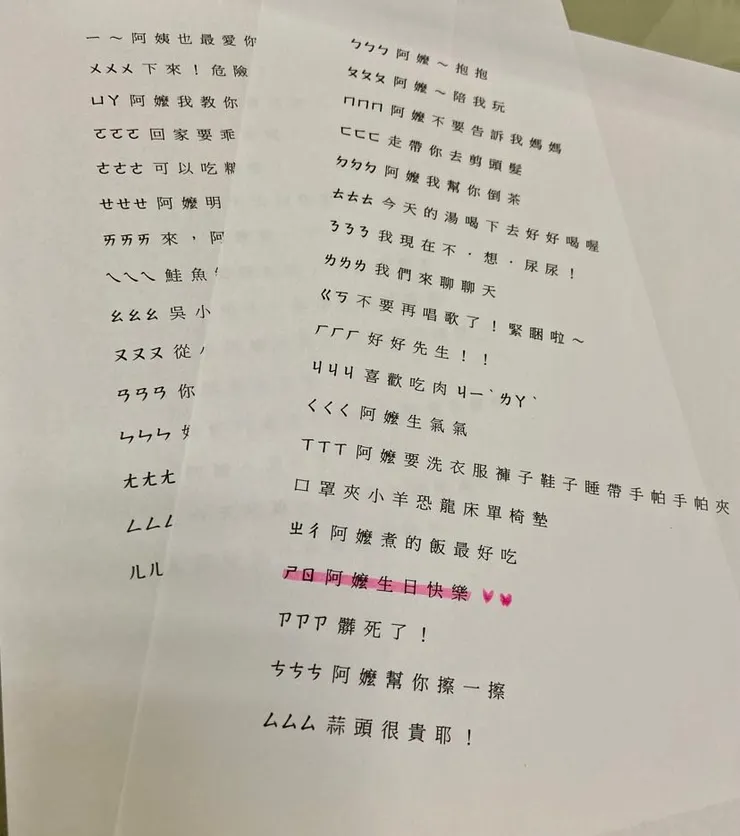 ㄅㄅㄅ阿嬤～抱抱
ㄆㄆㄆ阿嬤～陪我玩
ㄇㄇㄇ阿嬤不要告訴我媽媽
ㄈㄈㄈ走帶你去剪頭髮
ㄉㄉㄉ阿嬤我幫你倒茶
ㄊㄊㄊ今天的湯喝下去好好喝喔
ㄋㄋㄋ我現在不·想·尿尿！
ㄌㄌㄌ我們來聊聊天
ㄍㄎ不要再唱歌了！緊睏啦～
ㄏㄏㄏ好好先生！！
ㄐㄐㄐ喜歡吃肉ㄐㄧˋㄌㄚˋ
ㄑㄑㄑ阿嬤生氣氣
ㄒㄒㄒ阿嬤要洗衣服褲子鞋子睡帶手帕手帕夾
口罩夾小羊恐龍床單椅墊
ㄓㄔ阿嬤煮的飯最好吃
ㄕㄖ阿嬤生日快樂
ㄗㄗㄗ髒死了！
ㄘㄘㄘ阿嬤幫你擦一擦
ㄙㄙㄙ蒜頭很貴耶！
ㄧ～阿姨也最愛你
ㄨㄨㄨ下來！危險
ㄩㄚ阿嬤我教你
ㄛㄛㄛ回家要乖
ㄜㄜㄜ可以吃
ㄝㄝㄝ阿嬤明
ㄞㄞㄞ來，阿
ㄟㄟㄟ鮭魚
ㄠㄠㄠ吳小
ㄡㄡㄡ從
ㄢㄢㄢ你
ㄣㄣㄣ
ㄤㄤㄤ
ㄥㄥㄥ
ㄦㄦ